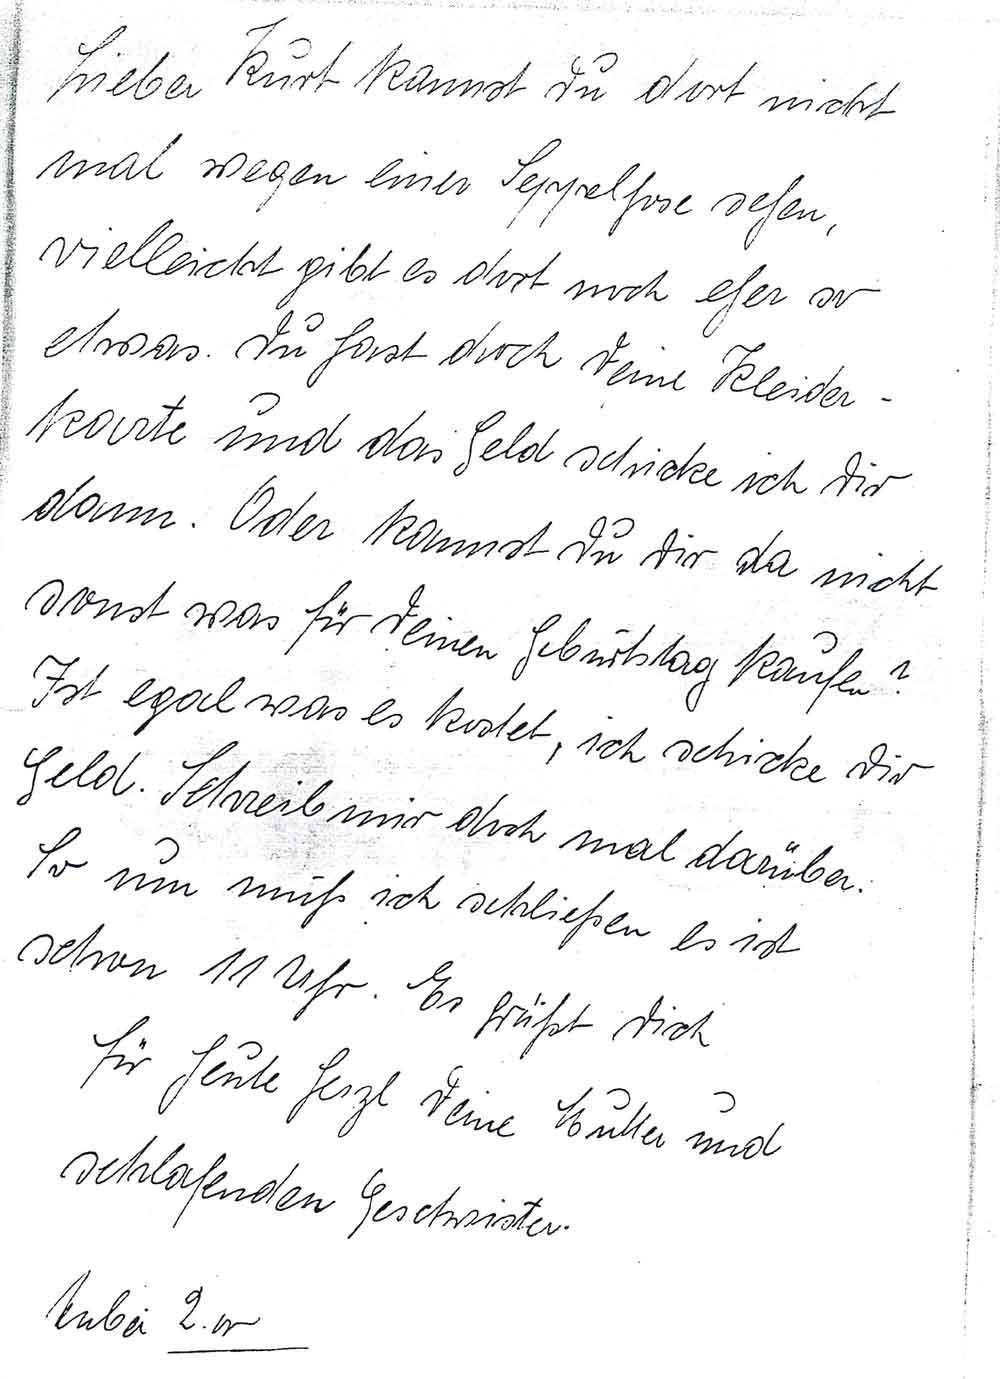 Lieber Kurt kannst Du dort nicht
mal wegen einer Seppelhose sehen,
vielleicht gibt es dort noch eher so
etwas. Du hast doch Deine Kleider-
karte und das Geld schicke ich Dir
dann. Oder kannst Du Dir da nicht
sonst was für Deinen Geburtstag kaufen?
Ist egal was es kostet, ich schicke Dir
Geld. Schreib mir doch mal darüber.
So nun muß ich schließen es ist
schon 11 Uhr. Es grüßt Dich
für heute herzl Deine Mutter und
schlafenden Geschwister.
Anbei 2.-